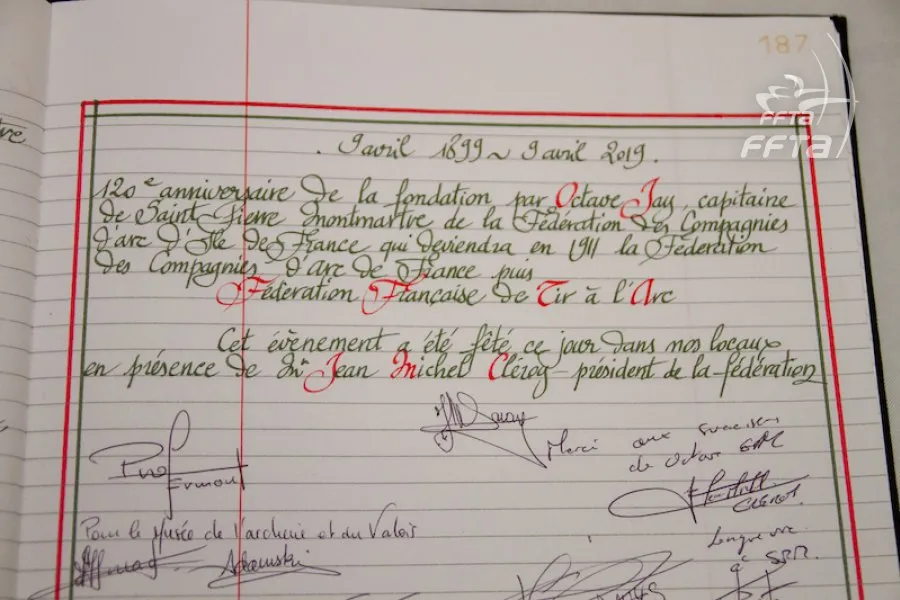 187
FFTA
FFTa
. 9 avril 1899 ~ 9 avril 2019 .
120e anniversaire de la fondation par Octave Jay, capitaine
de Saint-Pierre Montmartre de la Fédération des Compagnies
d'arc d'Ile de France qui deviendra en 1911 la Féderation
des Compagnies d'Arc de France puis
Féderation Française de Tir à l'Arc
Cet évènement a été fêté ce jour dans nos locaux
en présence de Mr Jean Michel Cléroy - président de la fédération
Merci aux
de Octave
Ermont
CLEROY
Pour le Musée de l'archerie et du Valois
Adamski